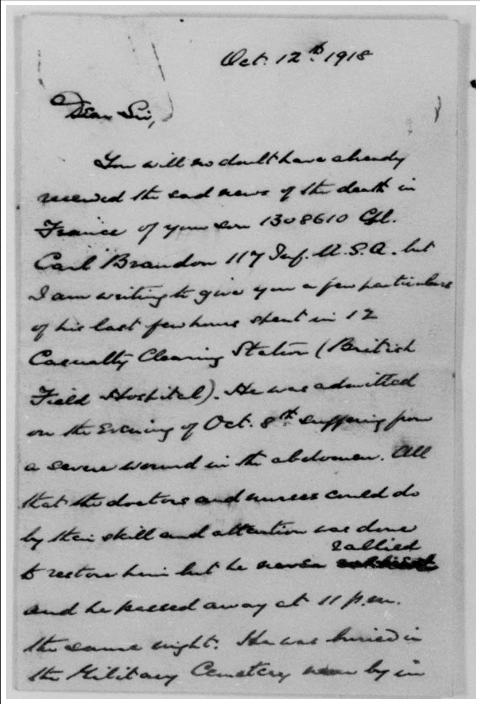 Oct. 12th 1918
Dear Sir,
You will no doubt have already
received the sad news of the death in
France of your son 1308610 Cpl.
Carl Brandon 117 Inf. U.S.A. but
I am writing to give you a few particulars
of his last few hours spent in 12
Casualty Clearing Station (British
Field Hospital). He was admitted
on the evening of Oct. 8th suffering from
a severe wound in the abdomen. All
that the doctors and nurses could do
by their skill and attention was done
rallied
to restore him but he never
and he passed away at 11 p.m.
the same night. He was buried in
the Military Cemetery near by in